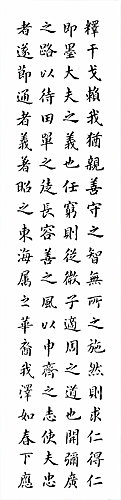 釋干戈賴我猶親善守之智無所之施然則求仁得仁
即墨大夫之義也任窮則從微子適周之道也開彌廣
之路以待田單之徒長容善之風以申齊之志使夫忠
者遂節通者義著昭之東海屬之華裔我澤如春下應